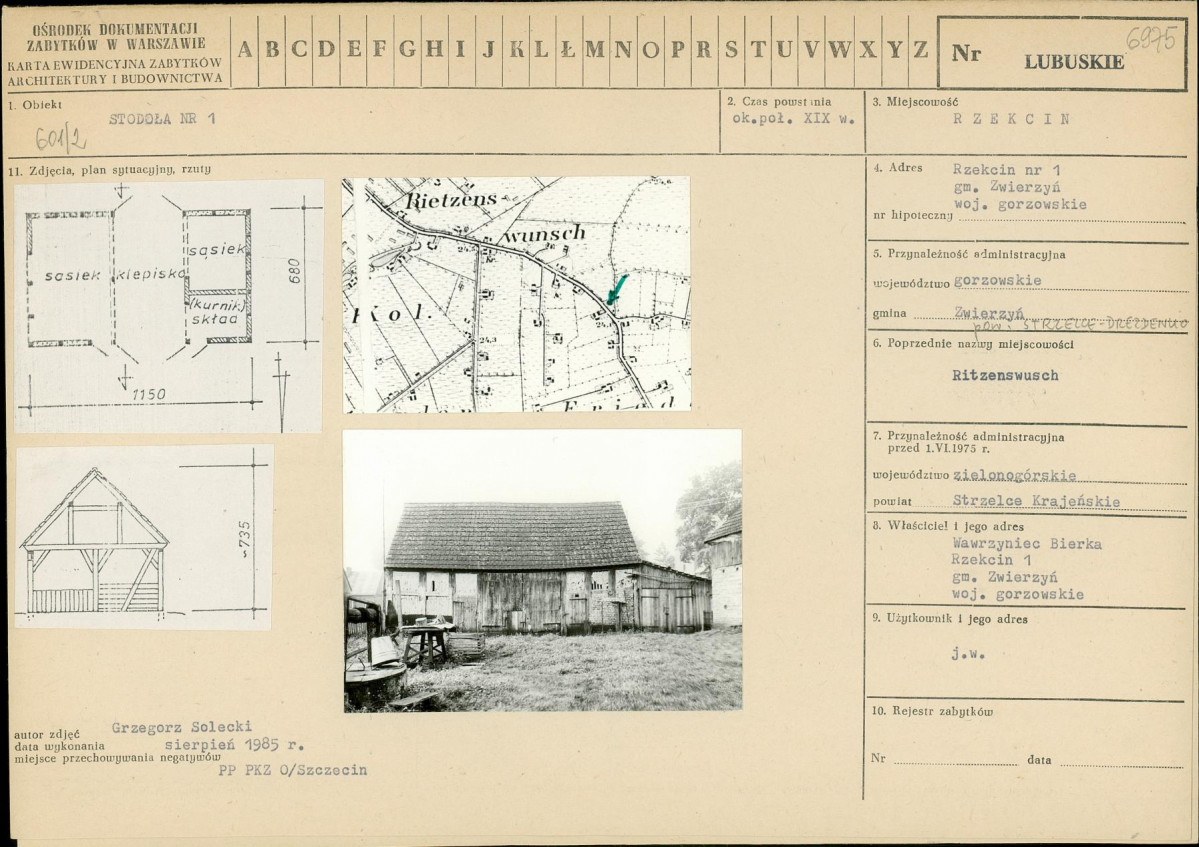 OŚRODEK DOKUMENTACJI
ZABYTKÓW W WARSZAWIE
KARTA EWIDENCYJNA ZABYTKÓW
ARCHITEKTURY I BUDOWNICTWA
A B C D E F G H I J K L Ł M N O P R S T U V W X Y Z
Nr LUBUSKIE 6975
1. Obiekt
STODOŁA NR 1
601/2
2. Czas powstania
ok.poł. XIX w.
3. Miejscowość
R Z E K C I N
11. Zdjęcia, plan sytuacyjny, rzuty
sąsiek
klepisko
sąsiek
(kurnik)
skład
680
1150
~735
Rietzens-
wunsch
Kol.
24,3
4. Adres Rzekcin nr 1
gm. Zwierzyń
woj. gorzowskie
nr hipoteczny
5. Przynależność administracyjna
województwo gorzowskie
gmina Zwierzyń
pow. STRZELCE-DREZDENKO
6. Poprzednie nazwy miejscowości
Ritzenswusch
7. Przynależność administracyjna
przed 1.VI.1975 r.
województwo zielonogórskie
powiat Strzelce Krajeńskie
8. Właściciel i jego adres
Wawrzyniec Bierka
Rzekcin 1
gm. Zwierzyń
woj. gorzowskie
9. Użytkownik i jego adres
j.w.
10. Rejestr zabytków
Nr data
autor zdjęć Grzegorz Solecki
data wykonania sierpień 1985 r.
miejsce przechowywania negatywów
PP PKZ O/Szczecin